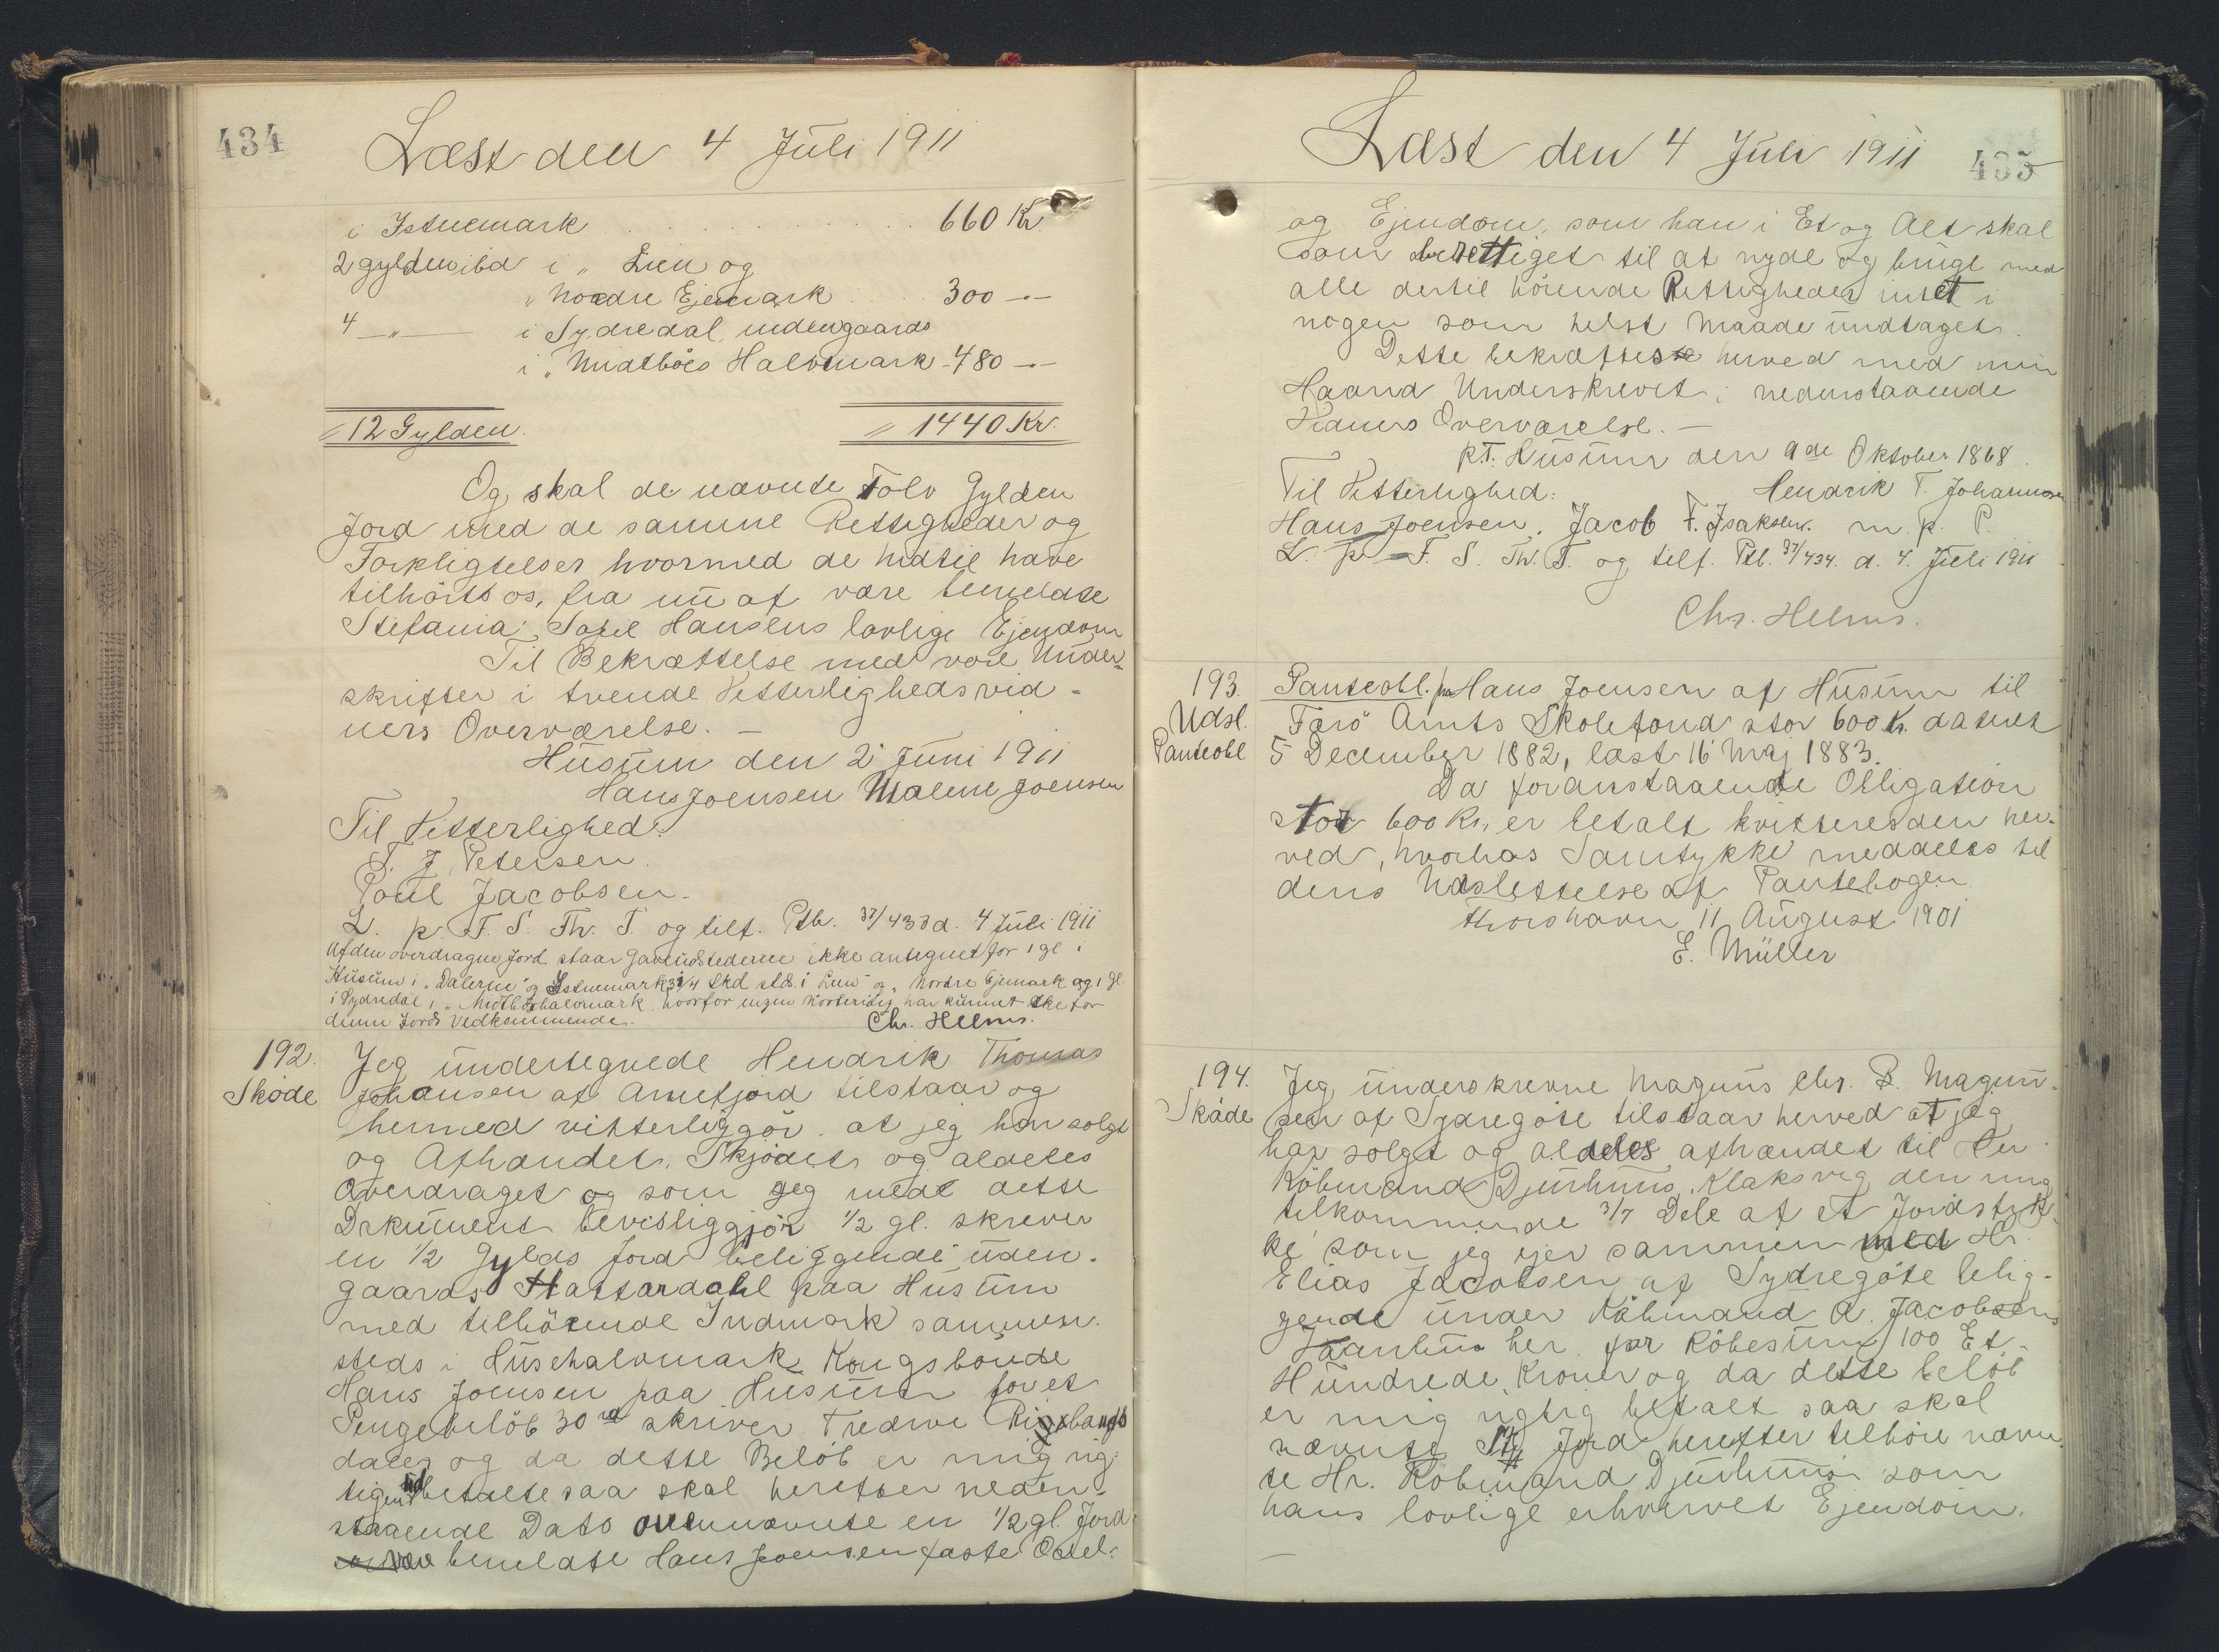 434
Læst den 4 Juli 1911
i Istuemark 660 Kr.
2 gylden ibd i „ Lien og
„ Nordre Ejemark 300 -.-
4 -„- i Sydredal, indengaards
i „ Midtböes Halvmark - 480 -.-
12 Gylden. 1440 Kr.
Og skal de nævnte Tolv Gylden
Jord med de samme Rettigheder og
Forpligtelser hvormed de hidtil have
tilhört os, fra nu af være bemeldte
Stefania Sofie Hansens lovlige Ejendom
Til Bekræftelse med vore Under-
skrifter i tvende Vitterlighedsvid-
ners Overværelse. -
Husum den 2' Juni 1911
Hans Joensen Malene Joensen
Til Vitterlighed:
T. J. Petersen.
Poul Jacobsen.
L. p. F. S. Th. T. og tilf. Ptb. 37/433 d. 4 Juli 1911
Af den overdragne Jord staar Gaveudstederne ikke antegnet for 1 gl i
Husum i „Dalerne" og Istuemark, 3 1/4 Skd stds. i Lien" og „ Nordre Ejemark og 1 gl.
i Sydredal i „ Midtböhalvmark, hvorfor ingen Notering har kunnet ske for
denne Jords Vedkommende.
Chr. Helms.
192.
Sköde
Jeg undertegnede Hendrik Thomas
Johansen af Arnefjord tilstaar og
hermed vitterliggör, at jeg har solgt
og Afhændet, Skjödet og aldeles
Overdraget og som jeg med dette
Dokument bevisliggjör 1/2 gl. skriver
en 1/2 Gylds Jord beliggende uden-
gaards Hattardahl paa Husum
med tilhörende Indmark sammen-
steds i Husehalvmark Kongsbonde
Hans Joensen paa Husum for et
Pengebelöb 30 rd skriver Tredive Rigsbanks
daler og da dette Belöb er mig rig-
tigen udbetalte saa skal herefter neden-
staaende Dato ovennævnte en 1/2 gl. Jord
være bemeldte Hans Joensen faste Odel-
Læst den 4 Juli 1911
435
og Ejendom, som han i Et og Alt skal
som berettiget til at nyde og bruge med
alle dertil hörende Rettigheder intet i
nogen som helst Maade undtaget.
Dette bekræftes herved med min
Haand Underskrevet i nedenstaaende
Vidners Overværelse. -
p.T. Husum den 9de Oktober 1868.
Til Vitterlighed: Hendrik T. Johannesen
Hans Joensen. Jacob F. Isaksen. m. p. P.
L. p. F. S. Th. T. og tilf. Ptb. 37/434. d. 4. Juli 1911
Chr. Helms.
193.
Udsl.
Panteobl
Panteobl. fra Hans Joensen af Husum til
Færö Amts Skolefond stor 600 Kr. dateret
5 December 1882, læst 16 Maj 1883.
Da foranstaaende Obligation
stor 600 Kr. er betalt kvitteres den her-
ved, hvorhos Samtykke meddeles til
dens Udslettelse af Pantebogen
Thorshavn 11 August 1901
E. Müller
194.
Sköde
Jeg underskrevne Magnus Chr. B. Magnu-
sen af Sydregöte tilstaar herved at jeg
har solgt og aldeles afhændet til Hr
Köbmand Djurhuus, Klaksvig den mig
tilkommende 3/7 Dele af et Jordstyk-
ke som jeg ejer sammen med Hr.
Elias Jacobsen af Sydregöte belig-
gende under Köbmand A. Jacobsens
her for Köbesum 100 Et
Hundrede Kroner og da dette belöb
er mig rigtig betalt saa skal
nævnte St. Jord herefter tilhöre nævn
te Hr. Köbmand Djurhuus som
hans lovlige erhvervet Ejendom.